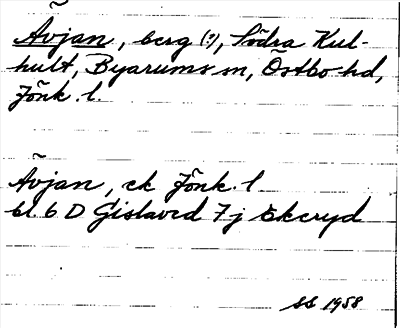 Åvjan, berg (?), Södra Kul-
hult, Byarums sn, Östbo hd,
Jönk. l.
Åvjan, ek Jönk. l
bl. 6 D Gislaved 7j Ekeryd
SS 1958